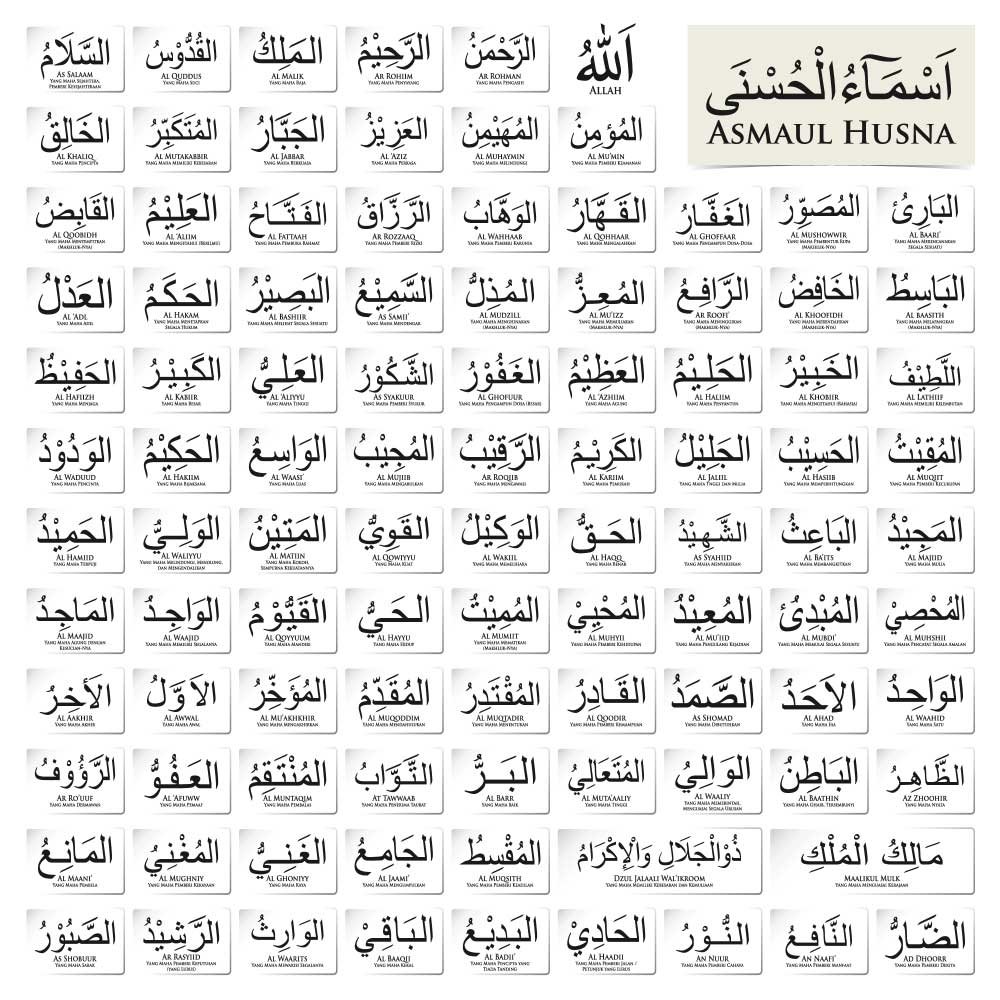 اَسْمَآءُالْحُسْنَى
ASMAUL HUSNA
اَللهُ
ALLAH
الرَّحْمَنُ
AR ROHMAN
YANG MAHA PENGASIH
الرَّحِيْمُ
AR ROHIIM
YANG MAHA PENYAYANG
المَلِكُ
AL MALIK
YANG MAHA RAJA
القُدُّوْسُ
AL QUDDUS
YANG MAHA SUCI
السَّلَامُ
AS SALAAM
YANG MAHA SEJAHTERA,
PEMBERI KESEJAHTERAAN
المُؤْمِنُ
AL MU'MIN
YANG MAHA PEMBERI KEAMANAN
المُهَيْمِنُ
AL MUHAYMIN
YANG MAHA MELINDUNGI
العَزِيْزُ
AL 'AZIZ
YANG MAHA PERKASA
الجَبَّارُ
AL JABBAR
YANG MAHA BERKUASA
المُتَكَبِّرُ
AL MUTAKABBIR
YANG MAHA MEMILIKI KEBESARAN
الخَالِقُ
AL KHALIQ
YANG MAHA PENCIPTA
البَارِئُ
AL BAARI'
YANG MAHA MERENCANAKAN
SEGALA SESUATU
المُصَوِّرُ
AL MUSHOWWIR
YANG MAHA PEMBENTUK RUPA
(MAKHLUK-NYA)
الغَفَّارُ
AL GHOFFAAR
YANG MAHA PENGAMPUN DOSA-DOSA
القَهَّارُ
AL QOHHAAR
YANG MAHA MENGALAHKAN
الوَهَّابُ
AL WAHHAAB
YANG MAHA PEMBERI KARUNIA
الرَّزَّاقُ
AR ROZZAAQ
YANG MAHA PEMBERI RIZKI
الفَتَّاحُ
AL FATTAAH
YANG MAHA PEMBUKA RAHMAT
العَلِيْمُ
AL 'ALIIM
YANG MAHA MENGETAHUI (BERILMU)
القَابِضُ
AL QOOBIDH
YANG MAHA MENYEMPITKAN
(MAKHLUK-NYA)
البَاسِطُ
AL BAASITH
YANG MAHA MELAPANGKAN
(MAKHLUK-NYA)
الخَافِضُ
AL KHOOFIDH
YANG MAHA MERENDAHKAN
(MAKHLUK-NYA)
الرَّافِعُ
AR ROOFI'
YANG MAHA MENINGGIKAN
(MAKHLUK-NYA)
المُعِزُّ
AL MU'IZZ
YANG MAHA MEMULIAKAN
(MAKHLUK-NYA)
المُذِلُّ
AL MUDZILL
YANG MAHA MENGHINAKAN
(MAKHLUK-NYA)
السَّمِيْعُ
AS SAMII'
YANG MAHA MENDENGAR
البَصِيْرُ
AL BASHIIR
YANG MAHA MELIHAT SEGALA SESUATU
الحَكَمُ
AL HAKAM
YANG MAHA MENETAPKAN
SEGALA HUKUM
العَدْلُ
AL 'ADL
YANG MAHA ADIL
اللَّطِيْفُ
AL LATHIIF
YANG MAHA MEMILIKI KELEMBUTAN
الخَبِيْرُ
AL KHOBIIR
YANG MAHA MENGETAHUI (RAHASIA)
الحَلِيْمُ
AL HALIIM
YANG MAHA PENYANTUN
العَظِيْمُ
AL 'AZHIIM
YANG MAHA AGUNG
الغَفُوْرُ
AL GHOFUUR
YANG MAHA PENGAMPUN DOSA (BESAR)
الشَّكُوْرُ
AS SYAKUUR
YANG MAHA PEMBERI SYUKUR
العَلِيُّ
AL 'ALIYYU
YANG MAHA TINGGI
الكَبِيْرُ
AL KABIIR
YANG MAHA BESAR
الحَفِيْظُ
AL HAFIIZH
YANG MAHA MENJAGA
المُقِيْتُ
AL MUQIIT
YANG MAHA PEMBERI KECUKUPAN
الحَسِيْبُ
AL HASIIB
YANG MAHA MEMPERHITUNGKAN
الجَلِيْلُ
AL JALIIL
YANG MAHA TINGGI DAN MULIA
الكَرِيْمُ
AL KARIIM
YANG MAHA PEMURAH
الرَّقِيْبُ
AR ROQIIB
YANG MAHA MENGAWASI
المُجِيْبُ
AL MUJIIB
YANG MAHA MENGABULKAN
الوَاسِعُ
AL WAASI'
YANG MAHA LUAS
الحَكِيْمُ
AL HAKIIM
YANG MAHA BIJAKSANA
الوَدُوْدُ
AL WADUUD
YANG MAHA PENCINTA
المَجِيْدُ
AL MAJIID
YANG MAHA MULIA
البَاعِثُ
AL BA'ITS
YANG MAHA MEMBANGKITKAN
الشَّهِيْدُ
AS SYAHIID
YANG MAHA MENYAKSIKAN
الحَقُّ
AL HAQQ
YANG MAHA BENAR
الوَكِيْلُ
AL WAKIIL
YANG MAHA MEMELIHARA
القَوِيُّ
AL QOWIYYU
YANG MAHA KUAT
المَتِيْنُ
AL MATIIN
YANG MAHA KOKOH,
SEMPURNA KEKUATANNYA
الوَلِيُّ
AL WALIYYU
YANG MAHA MELINDUNGI, MENOLONG,
DAN MENGENDALIKAN
الحَمِيْدُ
AL HAMIID
YANG MAHA TERPUJI
المُحْصِيْ
AL MUHSHII
YANG MAHA PENCATAT SEGALA AMALAN
المُبْدِئُ
AL MUBDI'
YANG MAHA MEMULAI SEGALA SESUATU
المُعِيْدُ
AL MU'IID
YANG MAHA PENGULANG KEJADIAN
المُحْيِيْ
AL MUHYII
YANG MAHA PEMBERI KEHIDUPAN
المُمِيْتُ
AL MUMIIT
YANG MAHA MEMATIKAN
(MAKHLUK-NYA)
الحَيُّ
AL HAYYU
YANG MAHA HIDUP
القَيُّوْمُ
AL QOYYUUM
YANG MAHA MANDIRI
الوَاجِدُ
AL WAAJID
YANG MAHA MEMILIKI SEGALANYA
المَاجِدُ
AL MAAJID
YANG MAHA AGUNG DENGAN
KESUCIAN-NYA
الوَاحِدُ
AL WAAHID
YANG MAHA SATU
الاَحَدُ
AL AHAD
YANG MAHA ESA
الصَّمَدُ
AS SHOMAD
YANG MAHA DIBUTUHKAN
القَادِرُ
AL QOODIR
YANG MAHA PEMBERI KEMAMPUAN
المُقْتَدِرُ
AL MUQTADIR
YANG MAHA MENENTUKAN
المُقَدِّمُ
AL MUQODDIM
YANG MAHA MENDAHULUKAN
المُؤَخِّرُ
AL MU'AKHKHIR
YANG MAHA MENGAKHIRKAN
الاَوَّلُ
AL AWWAL
YANG MAHA AWAL
الأَخِرُ
AL AAKHIR
YANG MAHA AKHIR
الظَّاهِرُ
AZ ZHOOHIR
YANG MAHA NYATA
البَاطِنُ
AL BAATHIN
YANG MAHA GHAIB, TERSEMBUNYI
الوَالِيُ
AL WAALIY
YANG MAHA MEMERINTAH,
MENGUASAI SEGALA URUSAN
المُتَعَالِيُ
AL MUTA'AALIY
YANG MAHA TINGGI
البَرُّ
AL BARR
YANG MAHA BAIK
التَّوَّابُ
AT TAWWAAB
YANG MAHA PENERIMA TAUBAT
المُنْتَقِمُ
AL MUNTAQIM
YANG MAHA PEMBALAS
العَفُوُّ
AL 'AFUWW
YANG MAHA PEMAAF
الرَّؤُوْفُ
AR RO'UUF
YANG MAHA DERMAWAN
مَالِكُ الْمُلْكِ
MAALIKUL MULK
YANG MAHA MENGUASAI KERAJAAN
ذُوْالجَلَالِ وَالْاِكْرَامُ
DZUL JALAALI WAL'IKROOM
YANG MAHA MEMILIKI KEBESARAN DAN KEMULIAAN
المُقْسِطُ
AL MUQSITH
YANG MAHA PEMBERI KEADILAN
الجَامِعُ
AL JAAMI'
YANG MAHA MENGUMPULKAN
الغَنِيُّ
AL GHONIYY
YANG MAHA KAYA
المُغْنِيُ
AL MUGHNIY
YANG MAHA PEMBERI KEKAYAAN
المَانِعُ
AL MAANI'
YANG MAHA PEMBELA
الضَّارُّ
AD DHOORR
YANG MAHA PEMBERI DERITA
النَّافِعُ
AN NAAFI'
YANG MAHA PEMBERI MANFAAT
النُّوْرُ
AN NUUR
YANG MAHA PEMBERI CAHAYA
الحَادِيْ
AL HAADII
YANG MAHA PEMBERI JALAN /
PETUNJUK YANG LURUS
البَدِيْعُ
AL BADII'
YANG MAHA PENCIPTA YANG
TIADA TANDING
البَاقِيْ
AL BAAQIJ
YANG MAHA KEKAL
الوَارِثُ
AL WAARITS
YANG MAHA MEWARISI SEGALANYA
الرَّشِيْدُ
AR RASYIID
YANG MAHA PEMBERI KEPUTUSAN
(YANG LURUS)
الصَّبُوْرُ
AS SHOBUUR
YANG MAHA SABAR